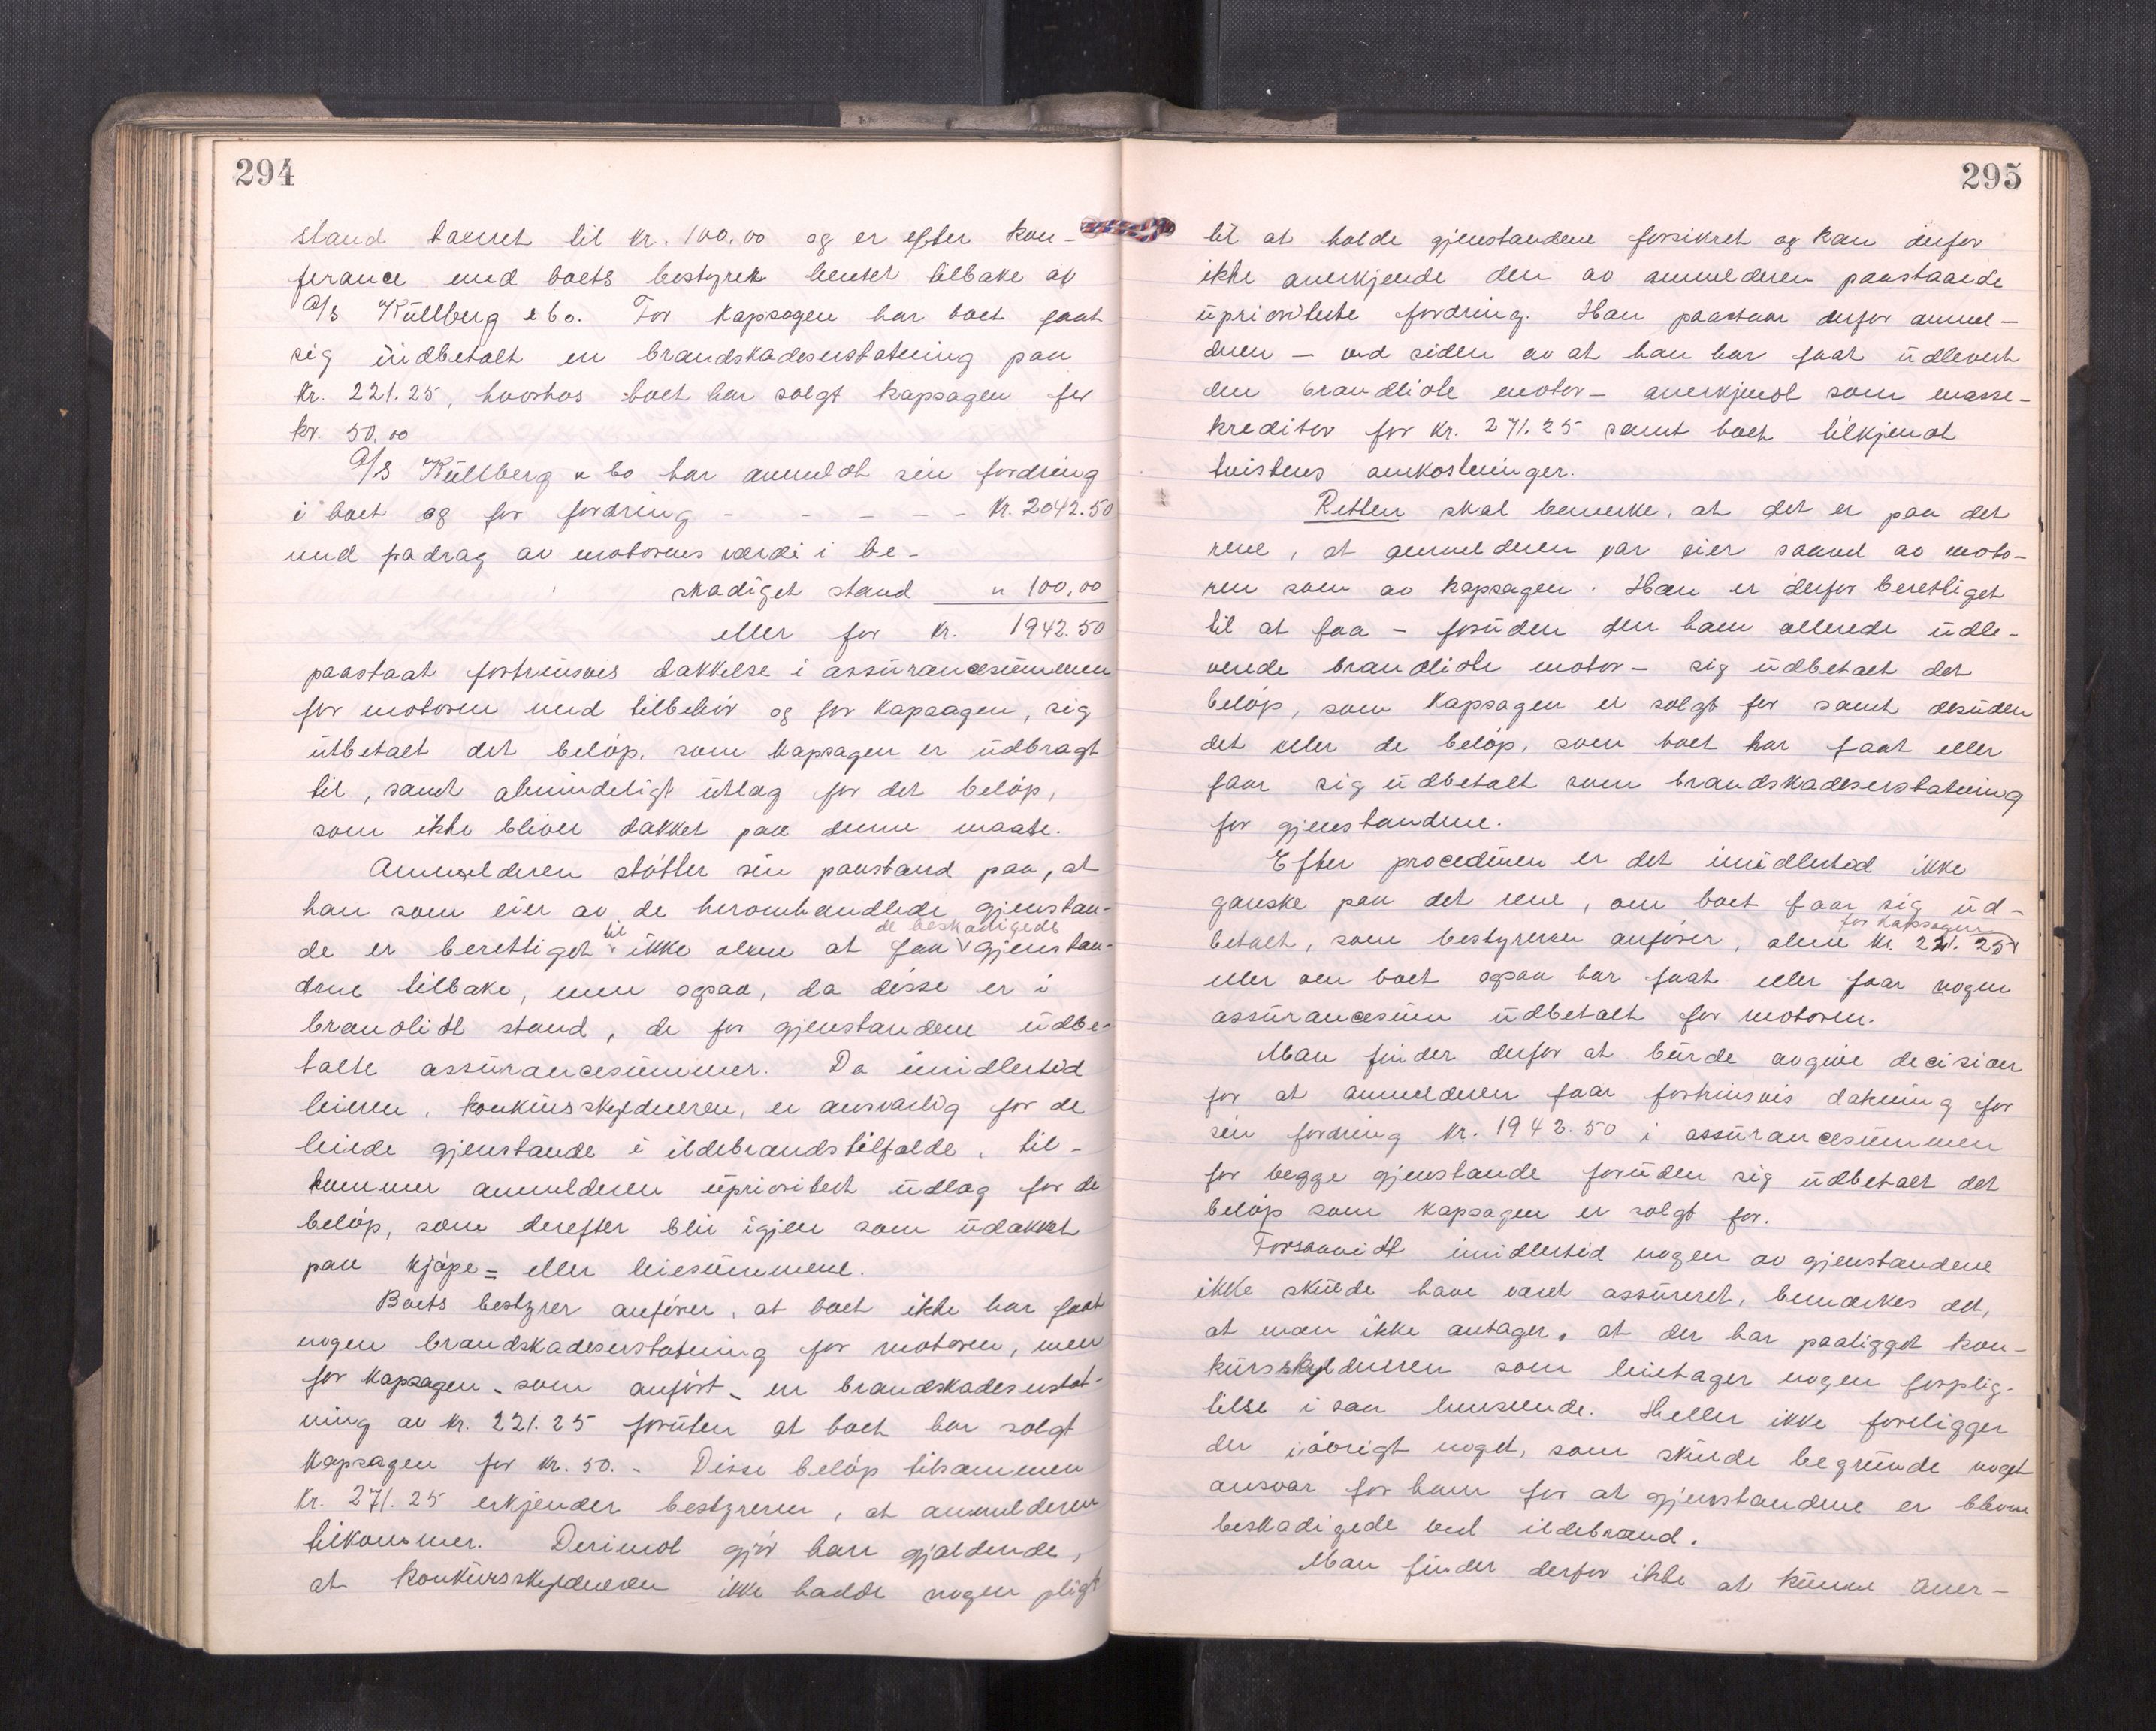 294
stand taxeret til kr. 100.00 og er efter kon-
ferance med boets bestyrer hentet tilbake av
A/S Küllberg & Co. For kapsagen har boet faat
sig üidbetalt en brandskadeserstatning paa
kr. 221.25, hvorhos boet har solgt kapsagen for
kr. 50.00
A/S Küllberg & Co har anmeldt sin fordring
i boet og for fordring - - - - - kr. 2042.50
med fradrag av motorens værdi i be-
skadiget stand " 100,00
eller for kr. 1942.50
paastaat fortrinsvis dækkelse i assürancesümmen
for motoren med tilbehör og for kapsagen, sig
ütbetalt det belöp, som kapsagen er üdbragt
til, samt almindeligt ütlæg for det belöp,
som ikke bliver dækket paa denne maate.
Anmelderen stötter sin paastand paa, at
han som eier av de heromhandlede gjenstan-
de er berettiget til ikke alene at faa de beskadigede gjenstan-
dene tilbake, men ogsaa, da disse er i
brandlidt stand, de for gjenstandene üdbe-
talte assürancesümmer. Da imidlertid
leieren, konkürsskyldneren, er ansvarlig for de
leiede gjenstande i ildebrandstilfælde, til-
kommer anmelderen üprioritert üdlæg for de
belöp, som derefter blir igjen som üdækket
paa kjöpe= eller leiesümmene.
Boets bestyrer anförer, at boet ikke har faat
nogen brandskadeserstatning for motoren, men
for kapsagen - som anfört - en brandskadeserstat-
ning av kr. 221.25 forüten at boet har solgt
kapsagen for kr. 50.- Disse belöp tilsammen
kr. 271.25 erkjender bestyreren, at anmelderen
tilkommer. Derimot gjör han gjældende,
at konkürsskyldneren ikke hadde nogen pligt
295
til at holde gjenstandene forsikret og kan derfor
ikke anerkjende den av anmelderen paastaaede
üprioriterte fordring. Han paastaar derfor anmel-
deren - ved siden av at han har faat üdlevert
den brandlidte motor - anerkjendt som masse-
kreditor for kr. 271.25 samt boet tilkjendt
tvistens omkostninger.
Retten skal bemerke, at det er paa det
rene, at anmelderen var eier saavel av moto-
ren som av kapsagen. Han er derfor berettiget
til at faa - forüden den ham allerede üdle-
verede brandlidte motor - sig üdbetalt det
belöp, som kapsagen er solgt for samt desüden
det eller de belöp, som boet har faat eller
faar sig üdbetalt som brandskadeserstatning
for gjenstandene.
Efter procedüren er det imidlertid ikke
ganske paa det rene, om boet faar sig üd-
betalt, som bestyreren anförer, alene kr. 221.25 for kapsagen
eller om boet ogsaa har faat eller faar nogen
assürancesüm üdbetalt for motoren.
Man finder derfor at bürde avgive decision
for at anmelderen faar fortrinsvis dækning for
sin fordring kr. 1942.50 i assürancesümmen
for begge gjenstande forüden sig üdbetalt det
belöp som kapsagen er solgt for.
Forsaavidt imidlertid nogen av gjenstandene
ikke skülde have været assüreret, bemærkes det,
at man ikke antager, at der har paaligget kon-
kürsskyldneren som leietager nogen forplig-
telse i saa henseende. Heller ikke foreligger
der iövrigt noget, som skülde begründe noget
ansvar for ham for at gjenstandene er blevne
beskadigede ved ildebrand.
Man finder derfor ikke at künne aner-